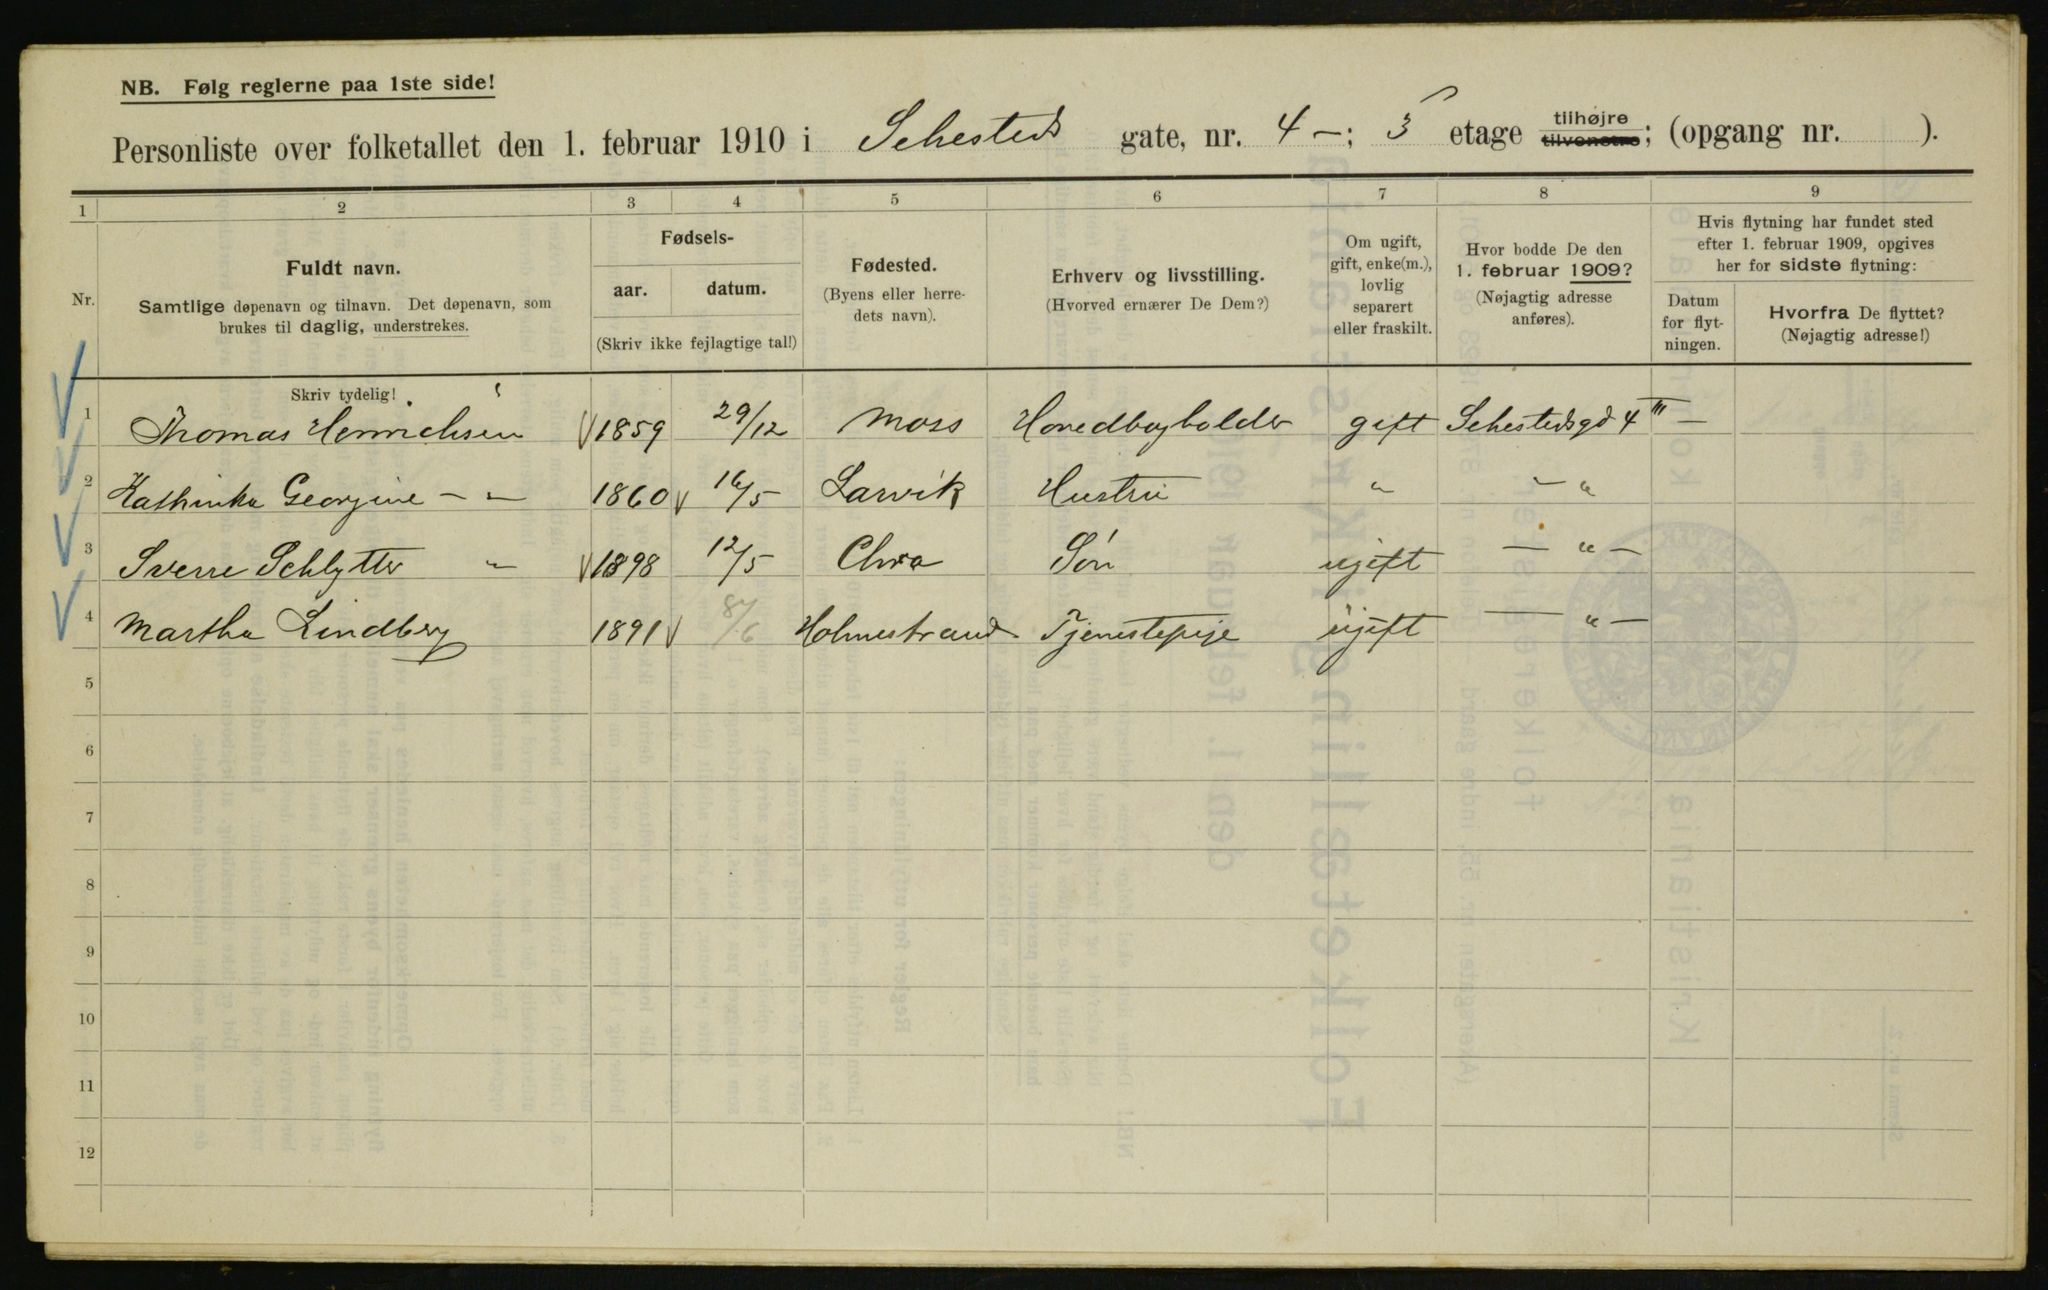 NB. Følg reglerne paa 1ste side!
Personliste over folketallet den 1. februar 1910 i Sehesteds gate, nr. 4 –; 3 etage tilhøjre tilvenstre; (opgang nr. ).
1 2 3 4 5 6 7 8 9
Nr.
Fuldt navn.
Samtlige døpenavn og tilnavn. Det døpenavn, som
brukes til daglig, understrekes.
Skriv tydelig!
Fødsels-
aar. datum.
(Skriv ikke fejlagtige tal!)
Fødested.
(Byens eller herre-
dets navn).
Erhverv og livsstilling.
(Hvorved ernærer De Dem?)
Om ugift,
gift, enke(m.),
lovlig
separert
eller fraskilt.
Hvor bodde De den
1. februar 1909?
(Nøjagtig adresse
anføres).
Hvis flytning har fundet sted
efter 1. februar 1909, opgives
her for sidste flytning:
Datum
for flyt-
ningen.
Hvorfra De flyttet?
(Nøjagtig adresse!)
1 Thomas Henrichsen 1859 29/12 Moss Hovedbogholder gift Sehestedsgd 4 III –
2 Kathinka Georgine – " – 1860 16/5 Larvik Hustru " – "
3 Sverre Schlytter " 1898 12/5 Chra Søn ugift – " –
4 Martha Lindberg 1891 8/6 Holmestrand Tjenestepige ugift – " –
5
6
7
8
9
10
11
12